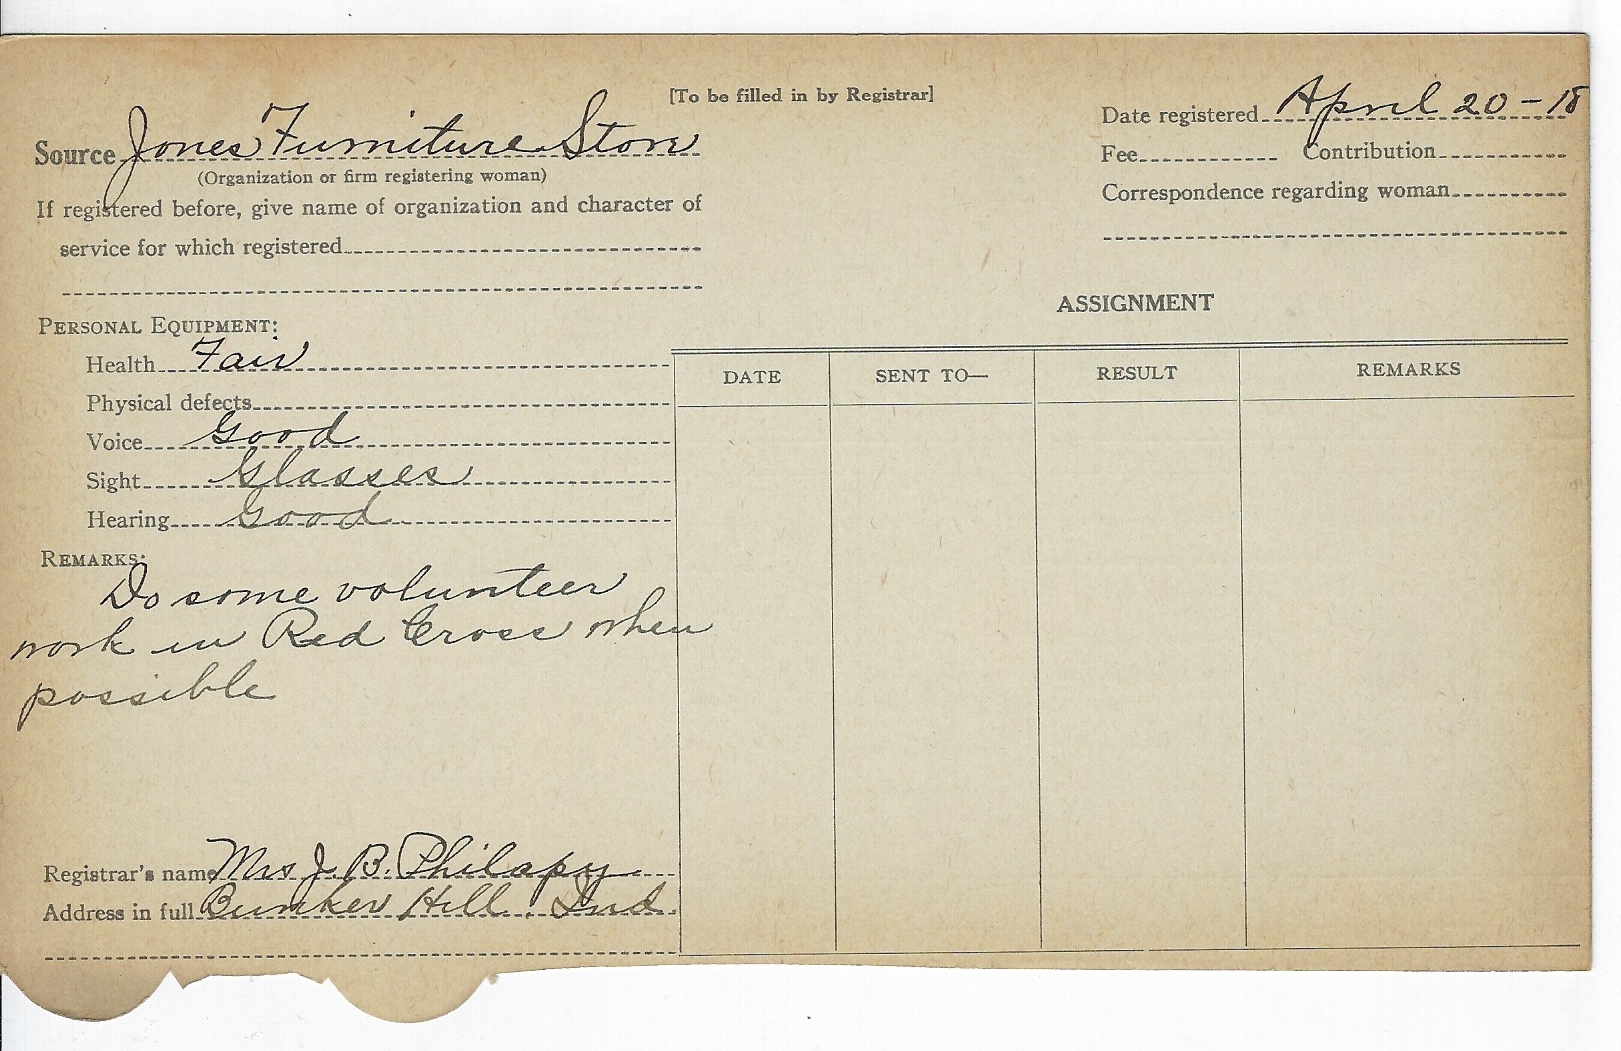 [To be filled in by Registrar]
Source Jones Furniture Store
(Organization or firm registering woman)
If registered before, give name of organization and character of
service for which registered
Date registered April 20-18
Fee Contribution
Correspondence regarding woman
PERSONAL EQUIPMENT:
Health Fair
Physical defects
Voice Good
Sight Glasses
Hearing Good
REMARKS:
Do some volunteer
work in Red Cross when
possible
Registrar's name Mrs J. B. Philapy
Address in full Bunker Hill. Ind.
ASSIGNMENT
DATE SENT TO— RESULT REMARKS